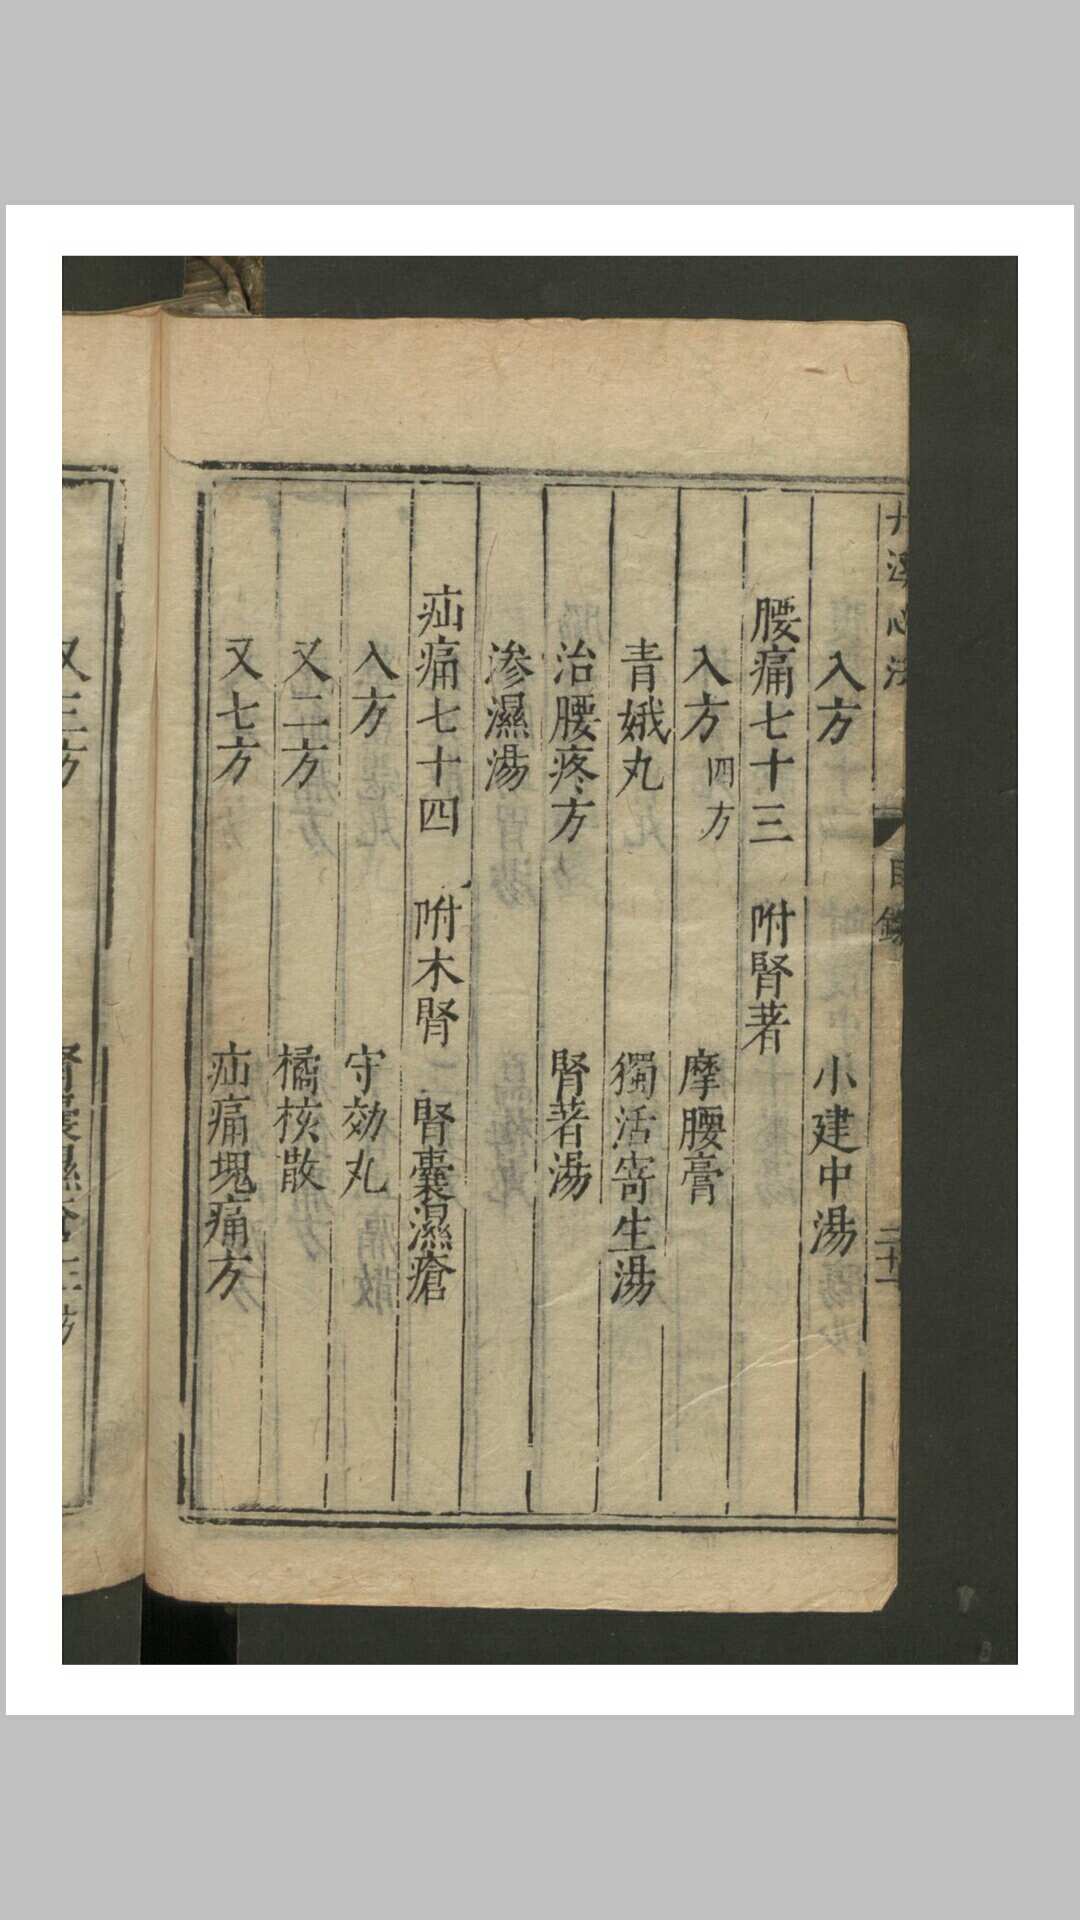 丹溪心法 目錄 二十一
入方 小建中湯
腰痛七十三 附腎著
入方 四方 摩腰膏
青娥丸 獨活寄生湯
治腰疼方 腎著湯
滲濕湯
疝痛七十四 附木腎 腎囊濕瘡
入方 守効丸
又二方 橘核散
又七方 疝痛塊痛方
又三方 腎囊濕瘡三方